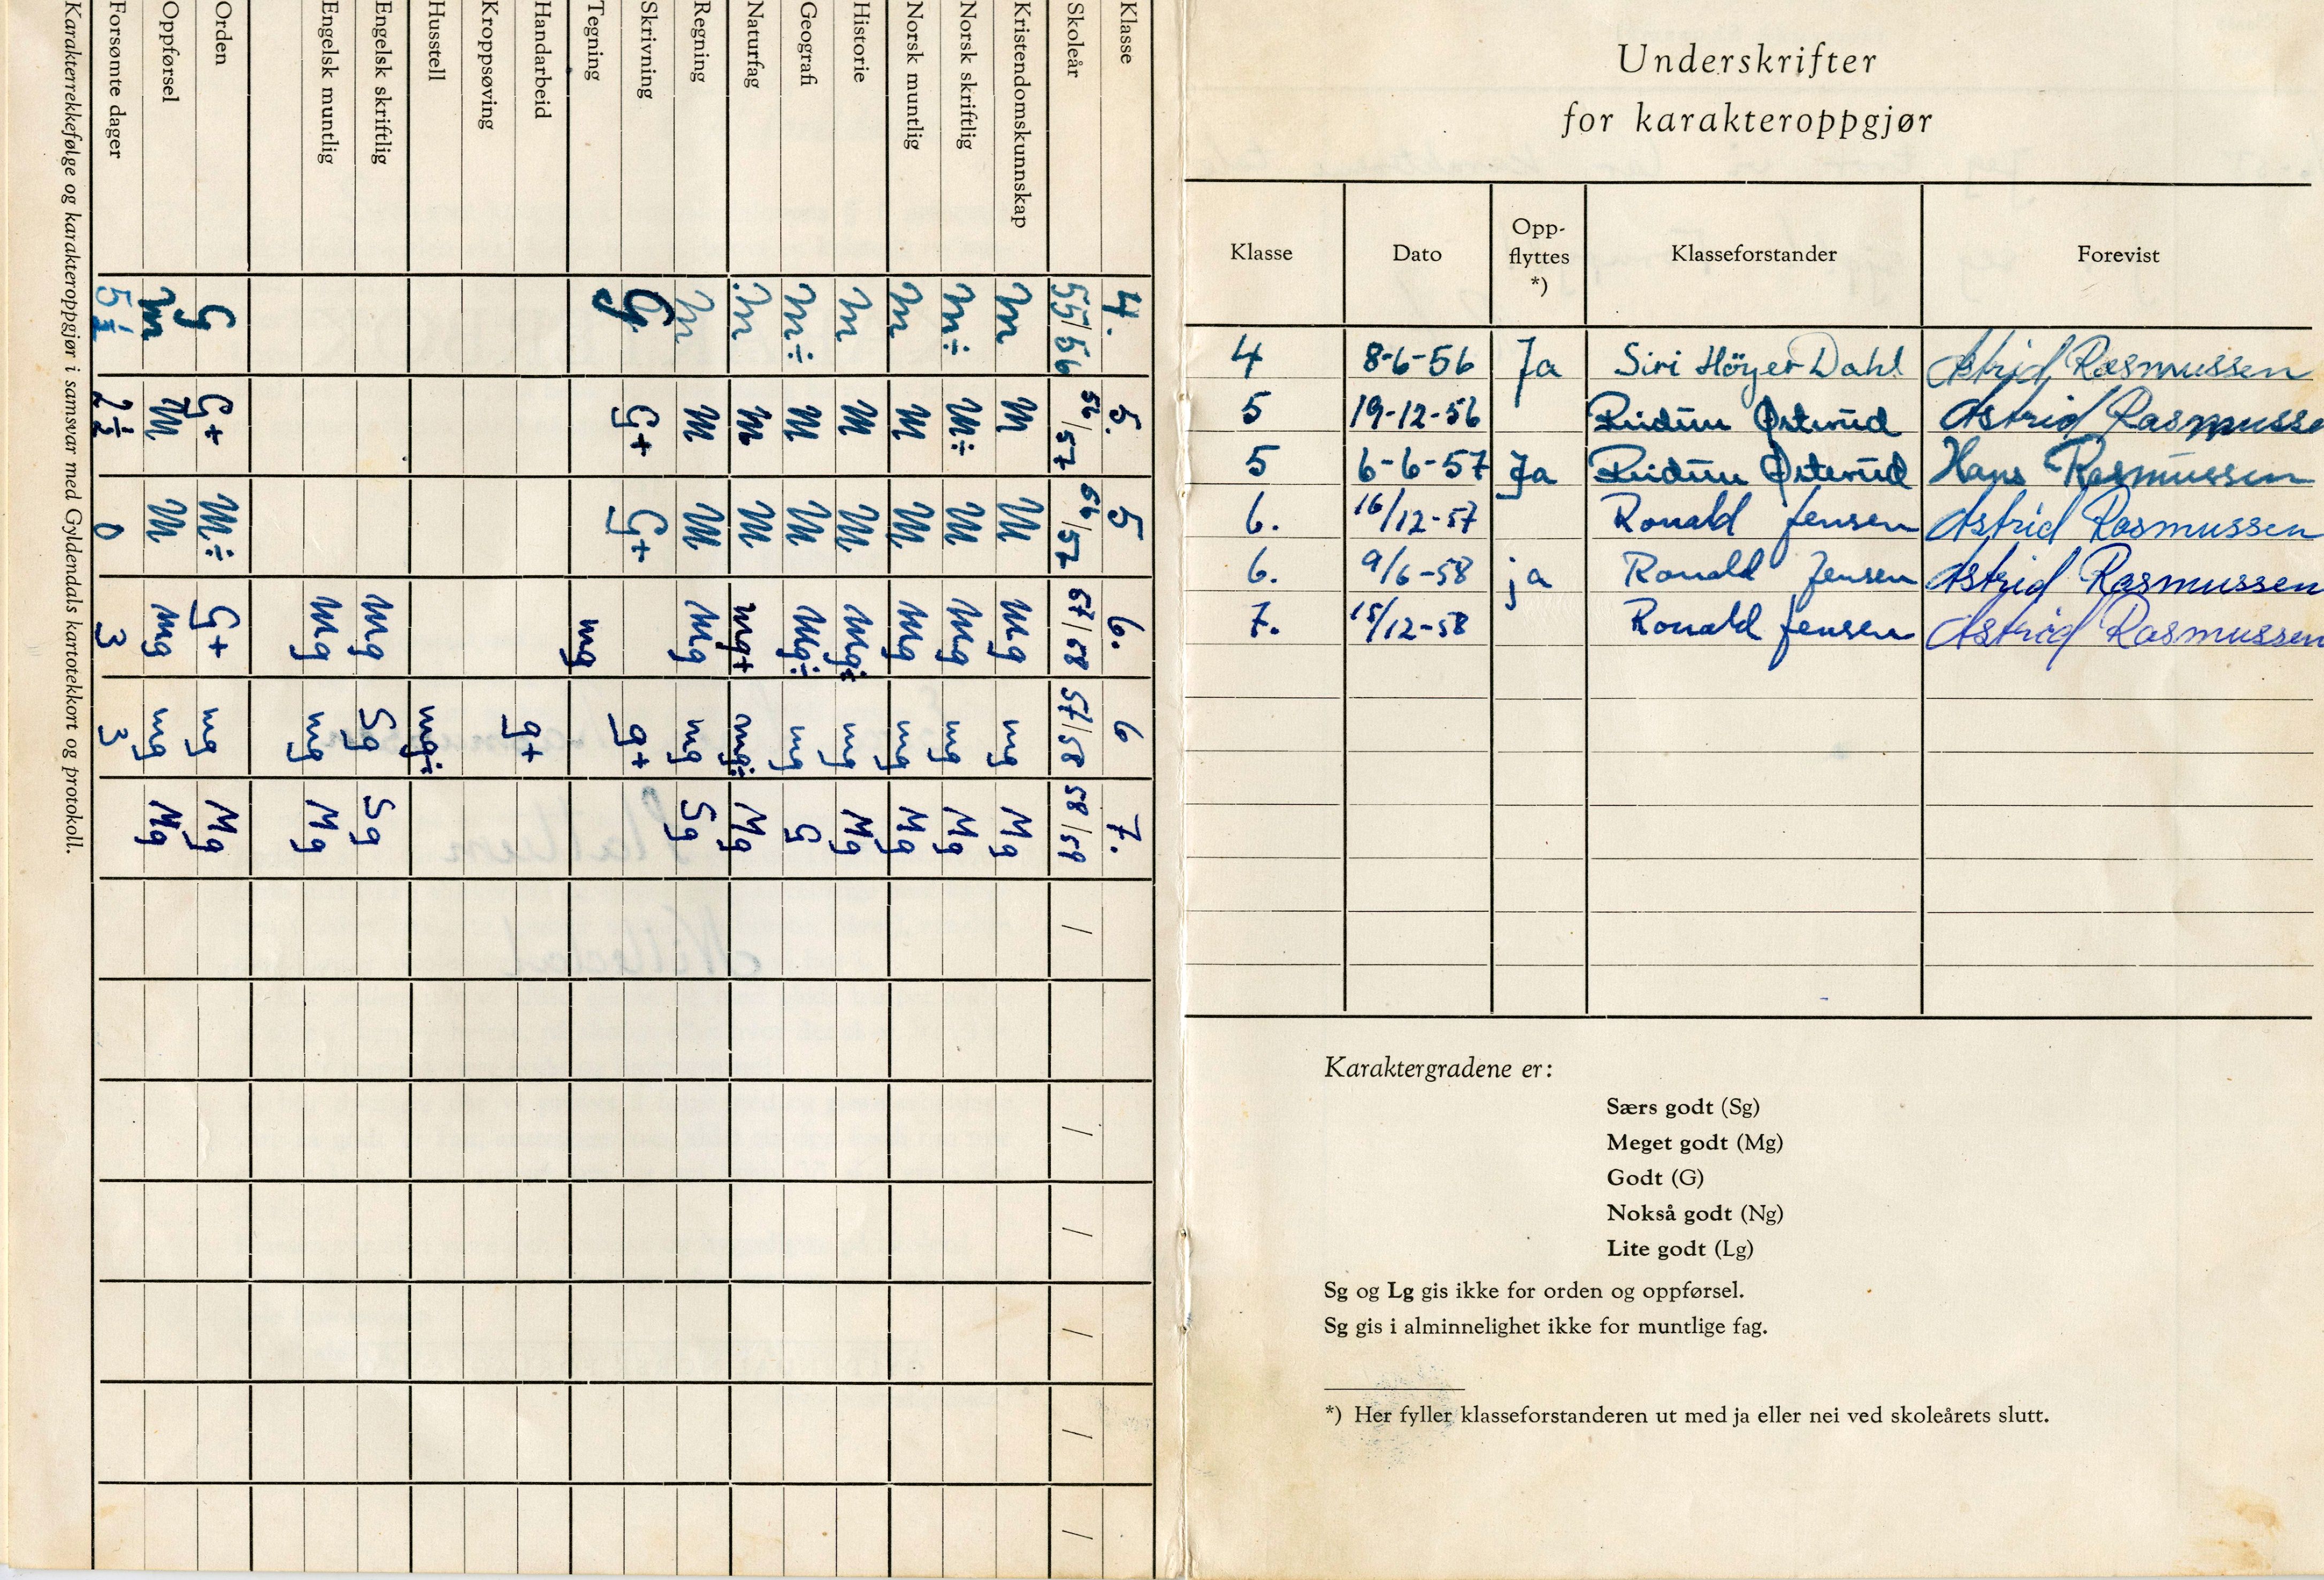 Klasse 4. 5. 5 6. 6 7.
Skoleår 55/56 56/57 56/57 57/58 57/58 58/59 / / / / / /
Kristendomskunnskap M M M Mg mg Mg
Norsk skriftlig M÷ M÷ M Mg mg Mg
Norsk muntlig M M M Mg mg Mg
Historie M M M Mg÷ mg Mg
Geografi M÷ M M Mg÷ mg G
Naturfag M M M mg+ mg÷ Mg
Regning M M M Mg mg Sg
Skrivning G G+ G+ g+
Tegning mg
Handarbeid g+
Kroppsøving
Husstell mg÷
Engelsk skriftlig Mg Sg Sg
Engelsk muntlig Mg mg Mg
Orden G G+ M÷ G+ mg Mg
Oppførsel M M M Mg mg Mg
Forsømte dager 5½ 2½ 0 3 3
Karakterrekkefølge og karakteroppgjør i samsvar med Gyldendals kartotekkort og protokoll.
Underskrifter
for karakteroppgjør
Klasse Dato Opp-flyttes *) Klasseforstander Forevist
4 8-6-56 Ja Siri Höyer Dahl Astrid Rasmussen
5 19-12-56 Østerud Astrid Rasmusse
5 6-6-57 Ja Østerud Hans Rasmussen
6. 16/12-57 Ronald Jensen Astrid Rasmussen
6. 9/6-58 ja Ronald Jensen Astrid Rasmussen
7. 15/12-58 Ronald Jensen Astrid Rasmussen
Karaktergradene er:
Særs godt (Sg)
Meget godt (Mg)
Godt (G)
Nokså godt (Ng)
Lite godt (Lg)
Sg og Lg gis ikke for orden og oppførsel.
Sg gis i alminnelighet ikke for muntlige fag.
*) Her fyller klasseforstanderen ut med ja eller nei ved skoleårets slutt.